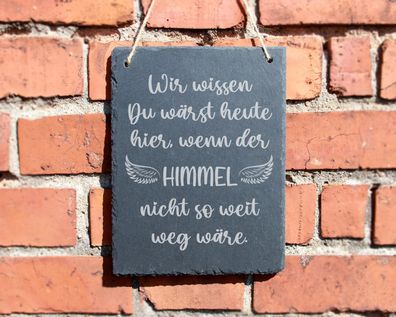 Wir wissen
Du wärst heute
hier, wenn der
HIMMEL
nicht so weit
weg wäre.